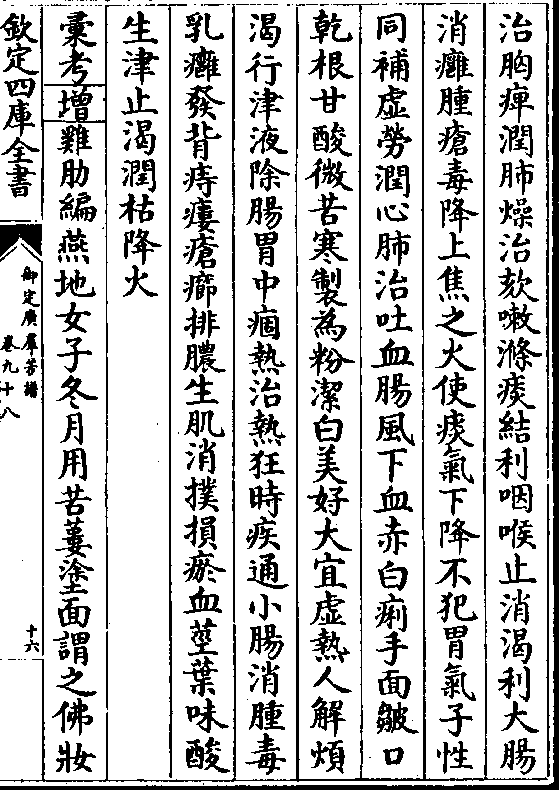 治胸痺潤肺燥治欬嗽滌痰結利咽喉止消渴利大腸
消癰腫瘡毒降上焦之火使痰氣下降不犯胃氣子性
同補虛勞潤心肺治吐血腸風下血赤白痢手面皺口
乾根甘酸微苦寒製為粉潔白美好大宜虛熱人解煩
渴行津液除腸胃中痼熱治熱狂時疾通小腸消腫毒
乳癰發背痔瘻瘡癤排膿生肌消撲損瘀血莖葉味酸
生津止渴潤枯降火
彚考增雞肋編燕地女子冬月用苦蔞塗面謂之佛妝
欽定四庫全書
御定廣羣芳譜
卷九十八
十六